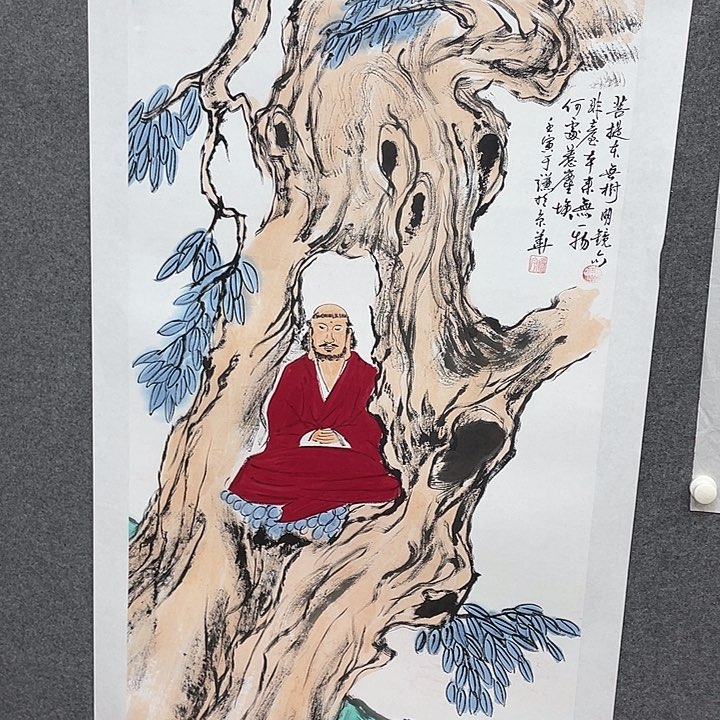 菩提本無樹明鏡亦
非臺本來無一物
何處惹塵埃
壬寅于謙於京華